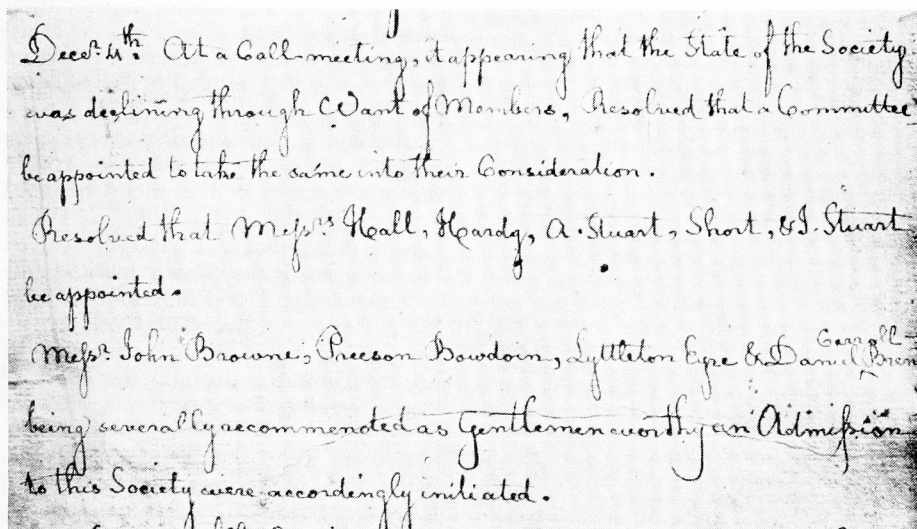 Decer. 4th. At a Call meeting, it appearing that the State of the Society
was declining through Want of Members, Resolved that a Committee
be appointed to take the same into their Consideration.
Resolved that Messrs Hall, Hardy, A. Stuart, Short, & J. Stuart
be appointed.
Messr. John Browne, Preeson Bowdoin, Lyttleton Eyre & Daniel Carroll Bren
being severally recommended as Gentlemen worthy an Admission
to this Society were accordingly initiated.